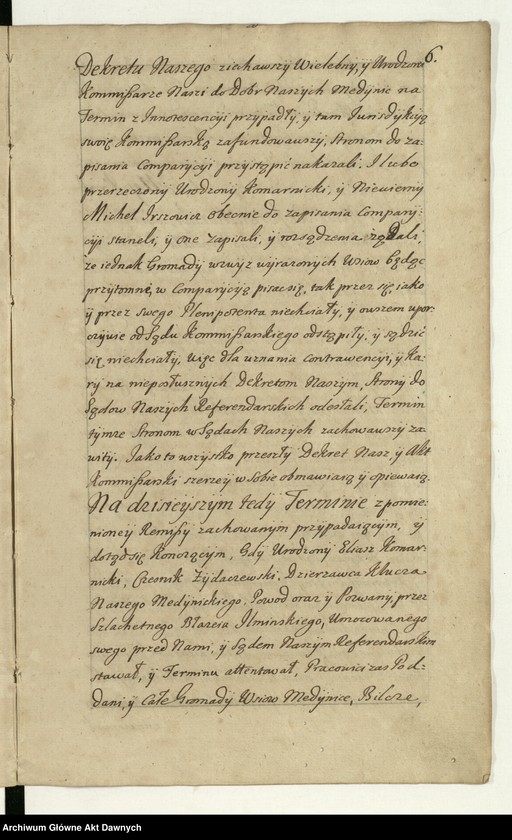 6.
Dekretu Naszego ziechawszy Wielebny, ÿ Urodzoni
Kommißarze Naszi do Dobr Naszych Medynic na
Termin z Innotescencyi przypadły, ÿ tam Jurisdykcyą
swoię Kommißarską zafundowawszy, Stronom do za-
pisania Comparycyi przystąpić nakazali. I lubo
przerzeczony Urodzony Komarnicki, ÿ Niewierny
Michel Irszowicz obecnie do zapisania Compary-
cyi staneli, ÿ one zapisali, ÿ rozsądzenia żądali,
że iednak Gromady wzwyż wyrażonych Wsiow będąc
przytomne, w Comparycyią pisac się, tak przez się iako
ÿ przez swego Plenipotenta niechciały, ÿ owszem upor-
czywie od Sądu Kommißarskiego odstąpiły, ÿ sądzić
się niechciały, Więc dla uznania Contrawencyi, ÿ Ka-
ry na nieposłusznych Dekretom Naszym, Strony do
Sądow Naszych Referendarskich odesłali, Termin
tymże Stronom w Sądach Naszych zachowawszy za-
wity. Jako to wszystko przeszły Dekret Nasz, ÿ Akt
Kommißarski szerzey w Sobie obmawiaią ÿ opiewaią.
Na dzisieyszym tedy Terminie z pomie-
nioney Remißy zachowanym przypadaiącym, ÿ
dotąd się Konczącym, Gdy Urodzony Eliasz Komar-
nicki, Czesnik Żydaczewski, Dzierzawca Klucza
Naszego Medynickiego, Powod oraz ÿ Pozwany, przez
Szlachetnego Błażeia Ilminskiego, Umocowanego
swego przed Nami, ÿ Sądem Naszym Referendarskim
stawał, ÿ Terminu attentował, Pracowici zas Pod-
dani, ÿ Całe Gromady Wsiow Medynice, Bilcze,
Archiwum Główne Akt Dawnych